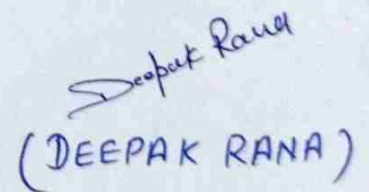 Deepak Rana
(DEEPAK RANA)